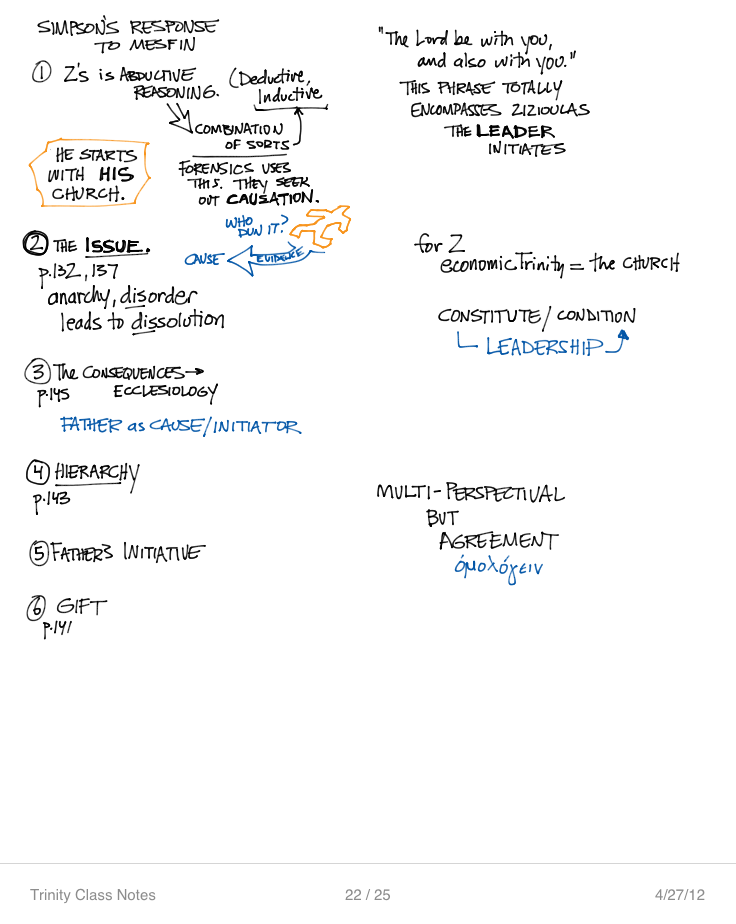 SIMPSON'S RESPONSE
TO MESFIN
① Z's is ABDUCTIVE
REASONING.
(Deductive,
Inductive
COMBINATION
OF SORTS
HE STARTS
WITH HIS
CHURCH.
FORENSICS USES
THIS. THEY SEEK
OUT CAUSATION.
WHO
DUN IT?
CAUSE
EVIDENCE
② THE ISSUE.
p.132, 137
anarchy, disorder
leads to dissolution
③ The CONSEQUENCES→
p.145 ECCLESIOLOGY
FATHER as CAUSE/INITIATOR
④ HIERARCHY
p.143
⑤ FATHER'S INITIATIVE
⑥ GIFT
p.141
"The Lord be with you,
and also with you."
THIS PHRASE TOTALLY
ENCOMPASSES ZIZIOULAS
THE LEADER
INITIATES
for Z
economic Trinity = the CHURCH
CONSTITUTE/CONDITION
LEADERSHIP
MULTI-PERSPECTIVAL
BUT
AGREEMENT
όμολόγειν
Trinity Class Notes
22 / 25
4/27/12